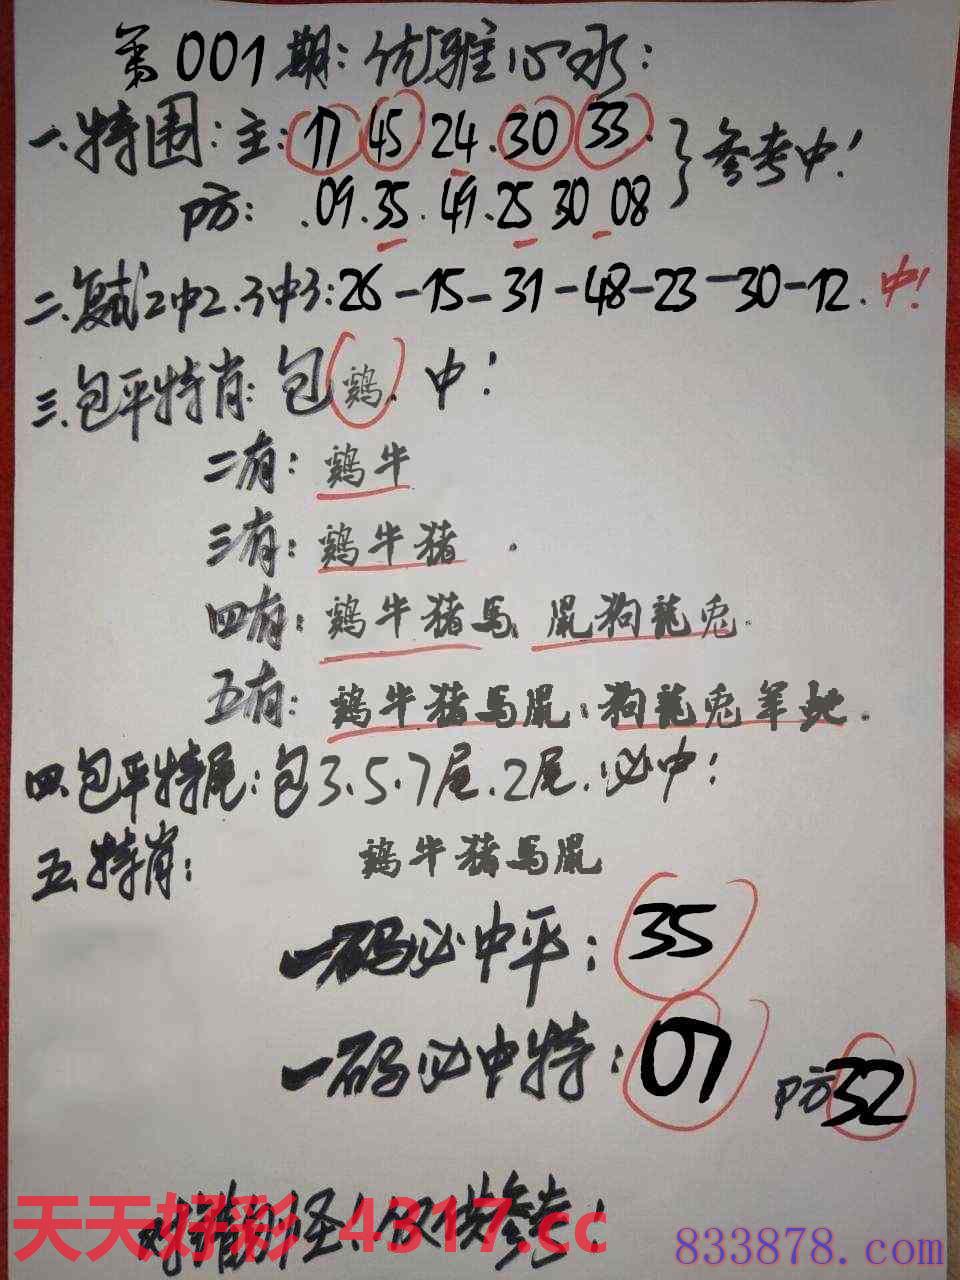 第001期:优雅心水:
一.特围:主:17.45.24.30.33.
防:.09.35.49.25 30 08 }参考中!
二.复试2中2.3中3:26-15-31-48-23-30-12.中!
三.包平特肖:包鷄.中!
二有:鷄牛
三有:鷄牛猪.
四有:鷄牛猪馬 鼠狗龍兎.
五有:鷄牛猪馬鼠:狗龍兎羊蛇.
四.包平特尾:包3.5.7尾.2尾.必中!
五.特肖:鷄牛猪馬鼠
一码必中平:35
一码必中特:07 防32
仅供参考!
天天好彩 4317.cc
833878.com